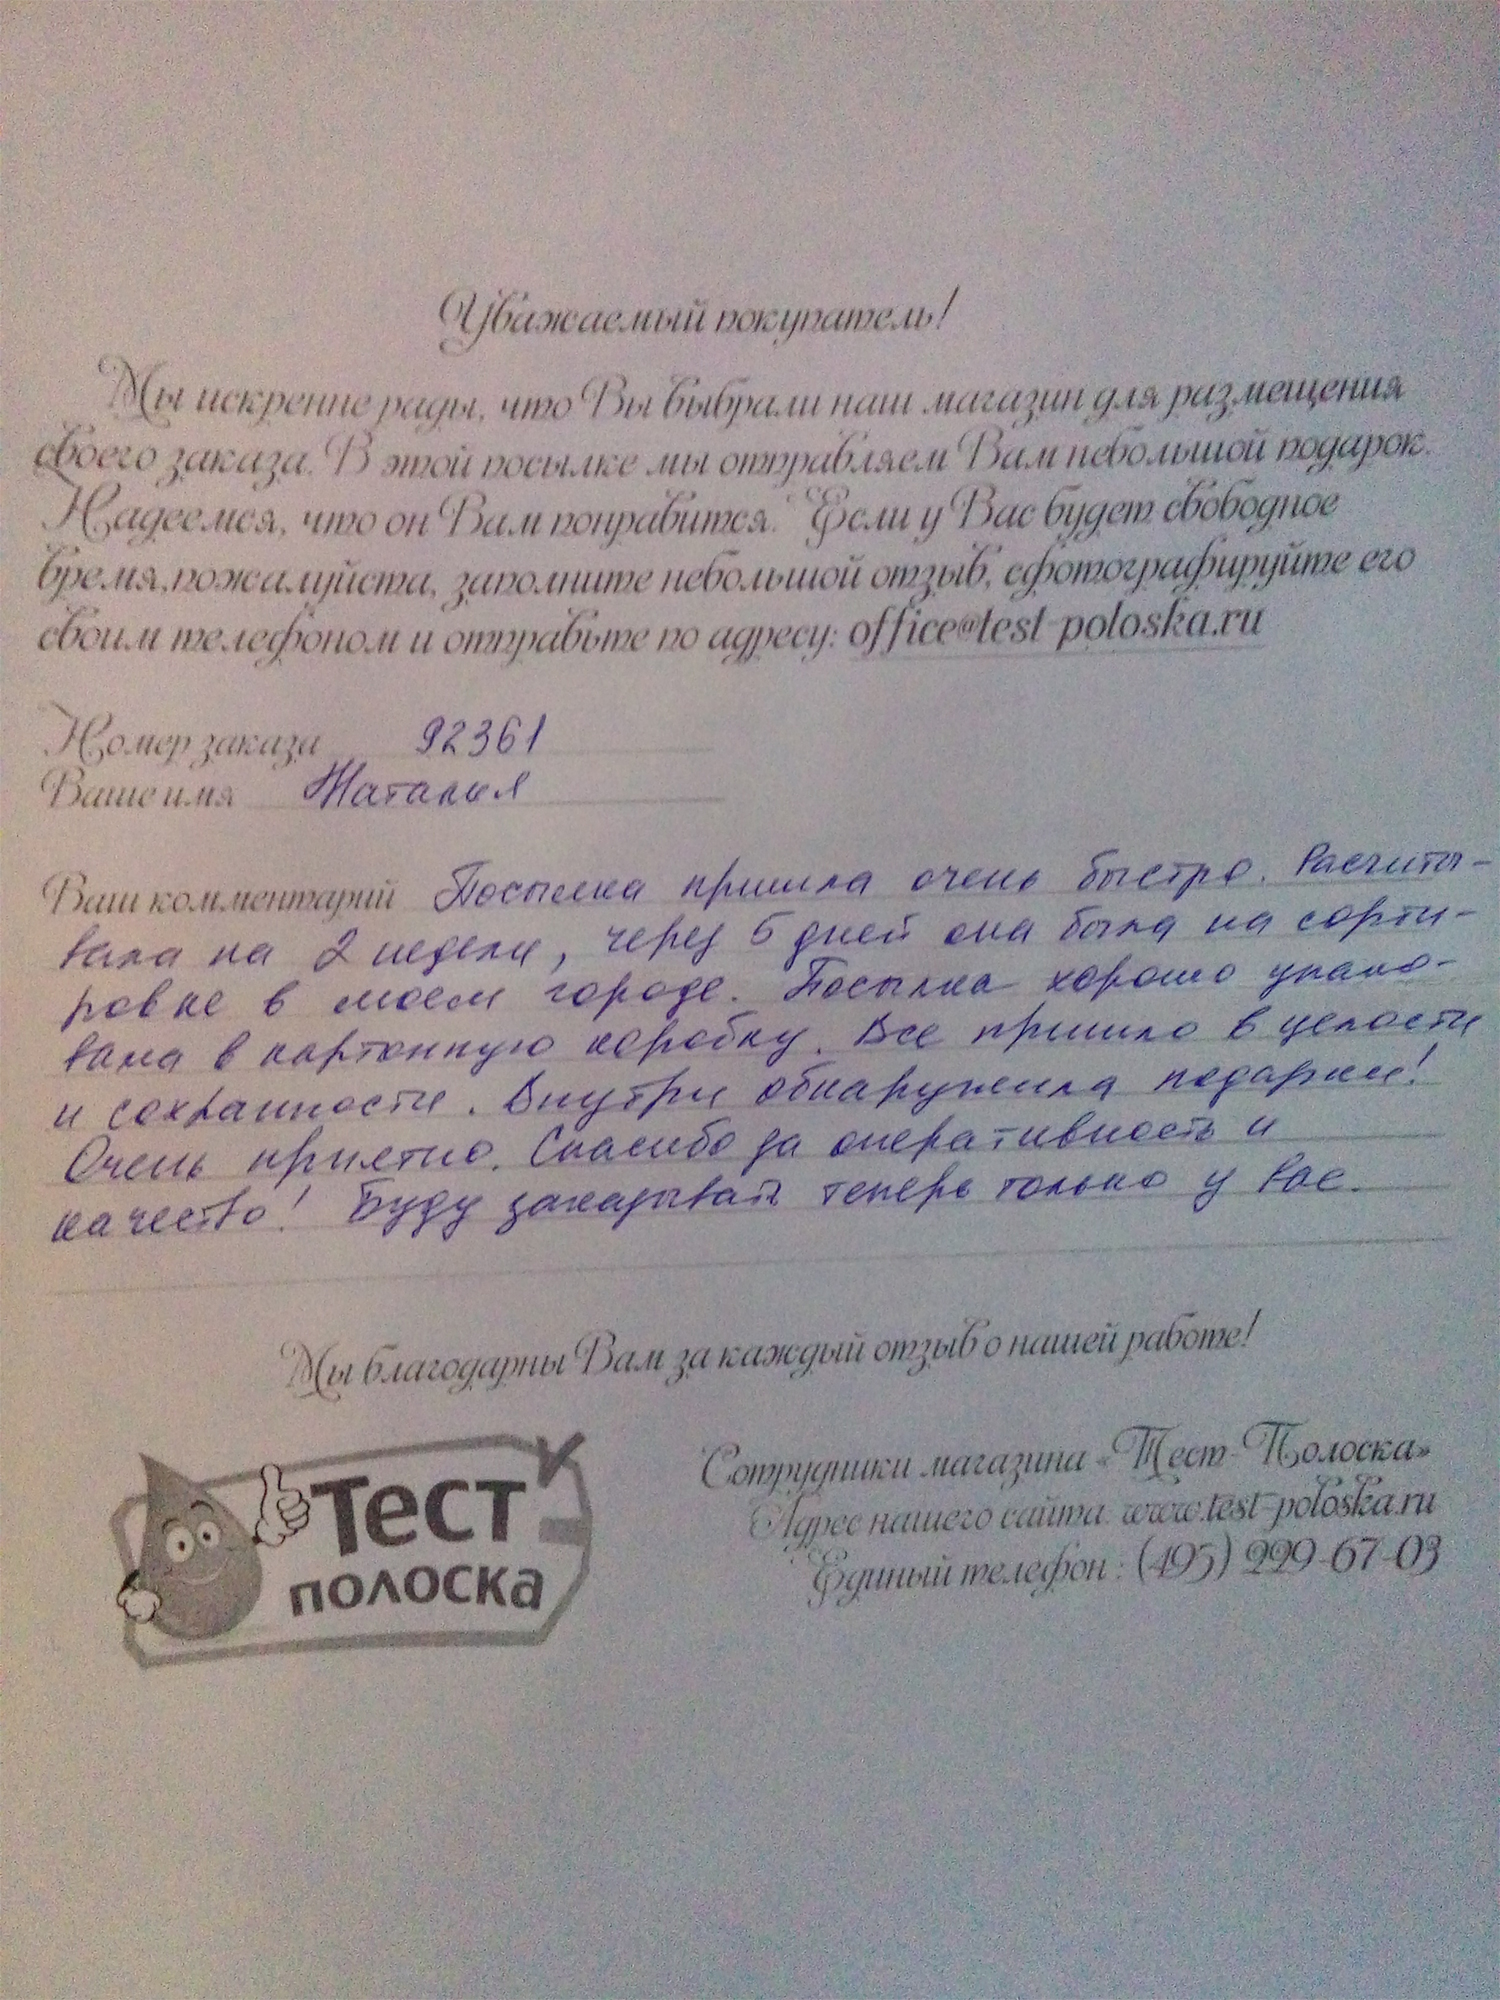 Уважаемый покупатель!
Мы искренне рады, что Вы выбрали наш магазин для размещения
своего заказа. В этой посылке мы отправляем Вам небольшой подарок.
Надеемся, что он Вам понравится. Если у Вас будет свободное
время,пожалуйста, заполните небольшой отзыв, сфотографируйте его
своим телефоном и отправьте по адресу: office@test-poloska.ru
Номер заказа 92361
Ваше имя Наталья
Ваш комментарий Посылка пришла очень быстро. Расчиты-
вала на 2 недели, через 5 дней она была на сорти-
ровке в моем городе. Посылка хорошо упако-
вана в картонную коробку. Все пришло в целости
и сохранности. Внутри обнаружила подарки!
Очень приятно. Спасибо за оперативность и
качество! Буду заказывать теперь только у вас.
Мы благодарны Вам за каждый отзыв о нашей работе!
Тест
полоска
Сотрудники магазина «Тест-Полоска»
Адрес нашего сайта: www.test-poloska.ru
Единый телефон : (495) 229-67-03